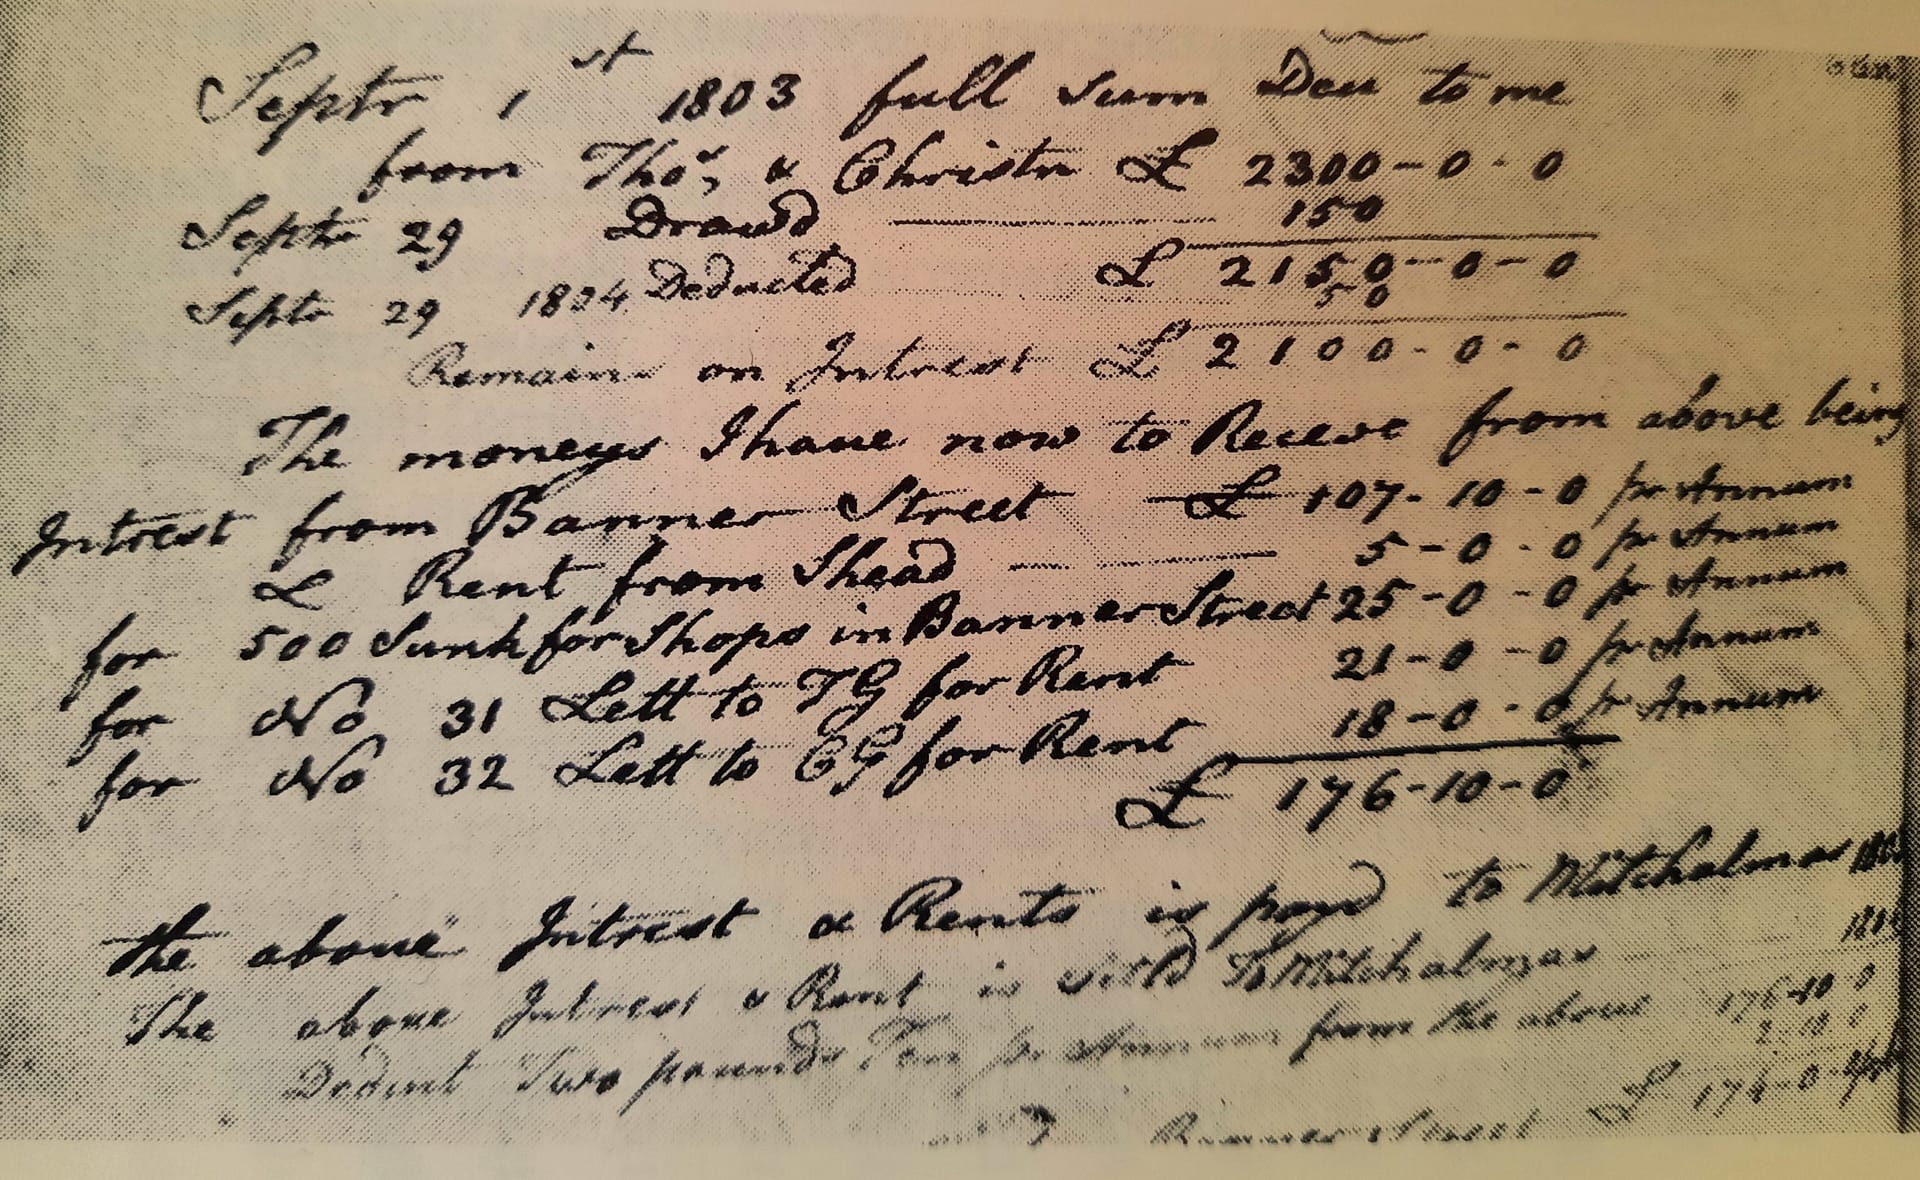 Septr 1st 1803 full Sum Deu to me
from Thos, & Christr £ 2300-0-0
Septr 29 Drawd 150
£ 2150-0-0
Septr 29 1804 Deducted 50
Remains on Intrest £ 2100-0-0
The moneys I have now to Receve from above being
Intrest from Banner Street £ 107-10-0 pr Annum
& Rent from Shead 5-0-0 pr Annum
for 500 Sunk for Shops in Banner Street 25-0-0 pr Annum
for No 31 Lett to TG for Rent 21-0-0 pr Annum
for No 32 Lett to CG for Rent 18-0-0 pr Annum
£ 176-10-0
the above Intrest & Rents is payd to Mitchalmas
The above Intrest & Rent is Setld To Mitchalmas
Deduct Two pounds Ten pr Annum from the above 176-10 0
2-10 0
£ 174-0
Banner Street